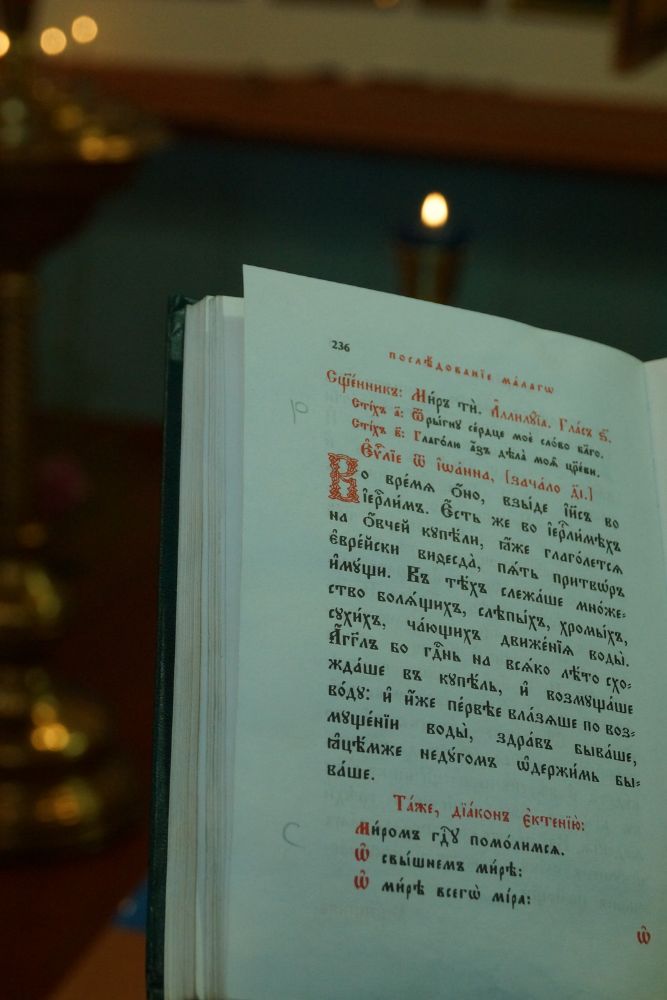 236
послѣ́дованїе ма́лагѡ
Сщ҃е́нникъ: Ми́ръ ти̑. А҆ллилꙋ́їа. Гла́съ ѕ҃.
Сті́хъ а҃: Ѿры́гнꙋ се́рдце моѐ сло́во бл҃го.
Сті́хъ в҃: Глаго́лю а҆́зъ дѣла̀ моѧ̑ цр҃е́ви.
Є҆ѵⷢ҇лїе ѿ і҆ѡа́нна, [зача́ло д҃і.]
Во вре́мѧ ѻ҆́но, взы́де і҆и҃съ во
і҆ерⷭ҇ли́мъ. Є҆́сть же во і҆ерⷭ҇ли́мѣхъ
на ѻ҆́вчей кꙋпѣ́ли, ꙗ҆́же глаго́летсѧ
є҆вре́йски видесда̀, пѧ́ть притвѡ́ръ
и҆мꙋ́щи. Въ тѣ́хъ слежа́ше мно́же-
ство болѧ́щихъ, слѣпы́хъ, хромы́хъ,
сꙋхи́хъ, ча́ющихъ движе́нїѧ воды̀.
А҆́гг҃лъ бо гдⷭ҇нь на всѧ́ко лѣ́то схо-
жда́ше въ кꙋпѣ́ль, и҆ возмꙋща́ше
во́дꙋ: и҆ и҆́же пе́рвѣе вла́зѧше по воз-
мꙋще́нїи воды̀, здра́въ быва́ше,
ꙗ҆цѣ́мже недꙋ́гомъ ѡ҆держи́мь бы-
ва́ше.
Та́же, дїа́конъ є҆ктенїю̀:
Ми́ромъ гдⷭ҇ꙋ помо́лимсѧ.
Ѡ҆ свы́шнемъ ми́рѣ:
Ѡ҆ ми́рѣ всегѡ̀ мі́ра:
Ѡ҆